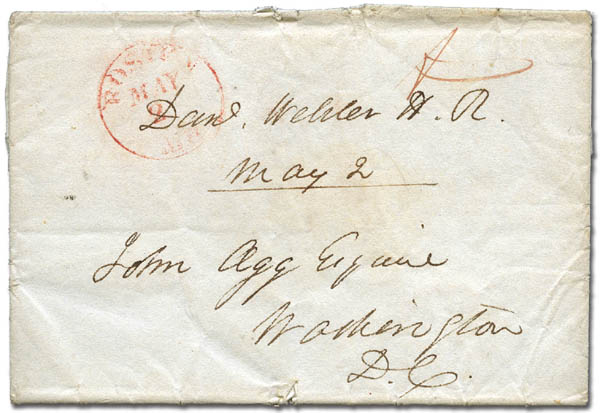 BOSTON
MAY
2
Danl. Webster H. R.
May 2
John Agg Esquire
Washington
D.C.